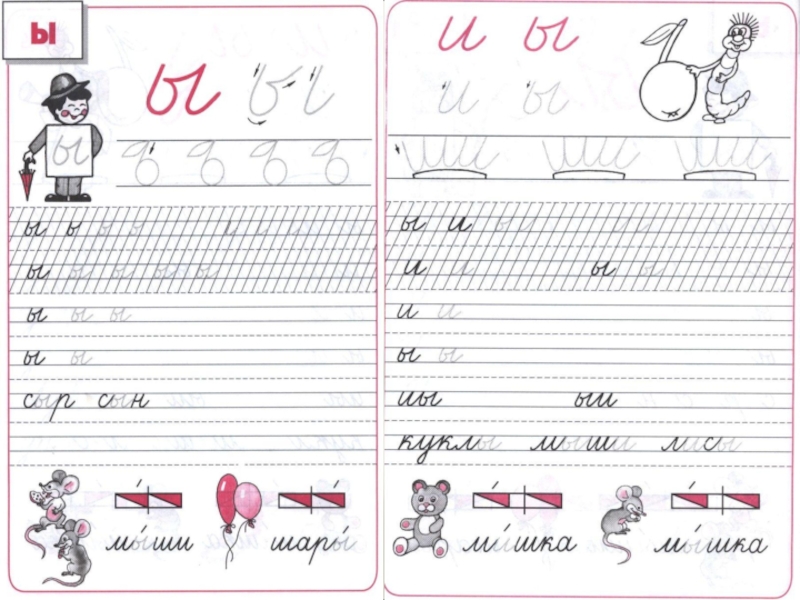 ы
ы ы
ы
ы ь
ы ы ы ы ы
ы ы ы
ы ы
сыр сын
мы́ши шары́
и ы
и ы
ы и ы и
и и ы ы
и и
ы ы
иы ыи
куклы мыши лисы
ми́шка мы́шка